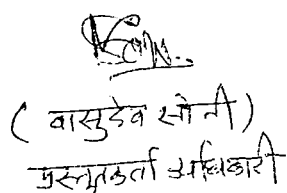 ( वासुदेव सोनी )
प्रस्तुतकर्ता अधिकारी